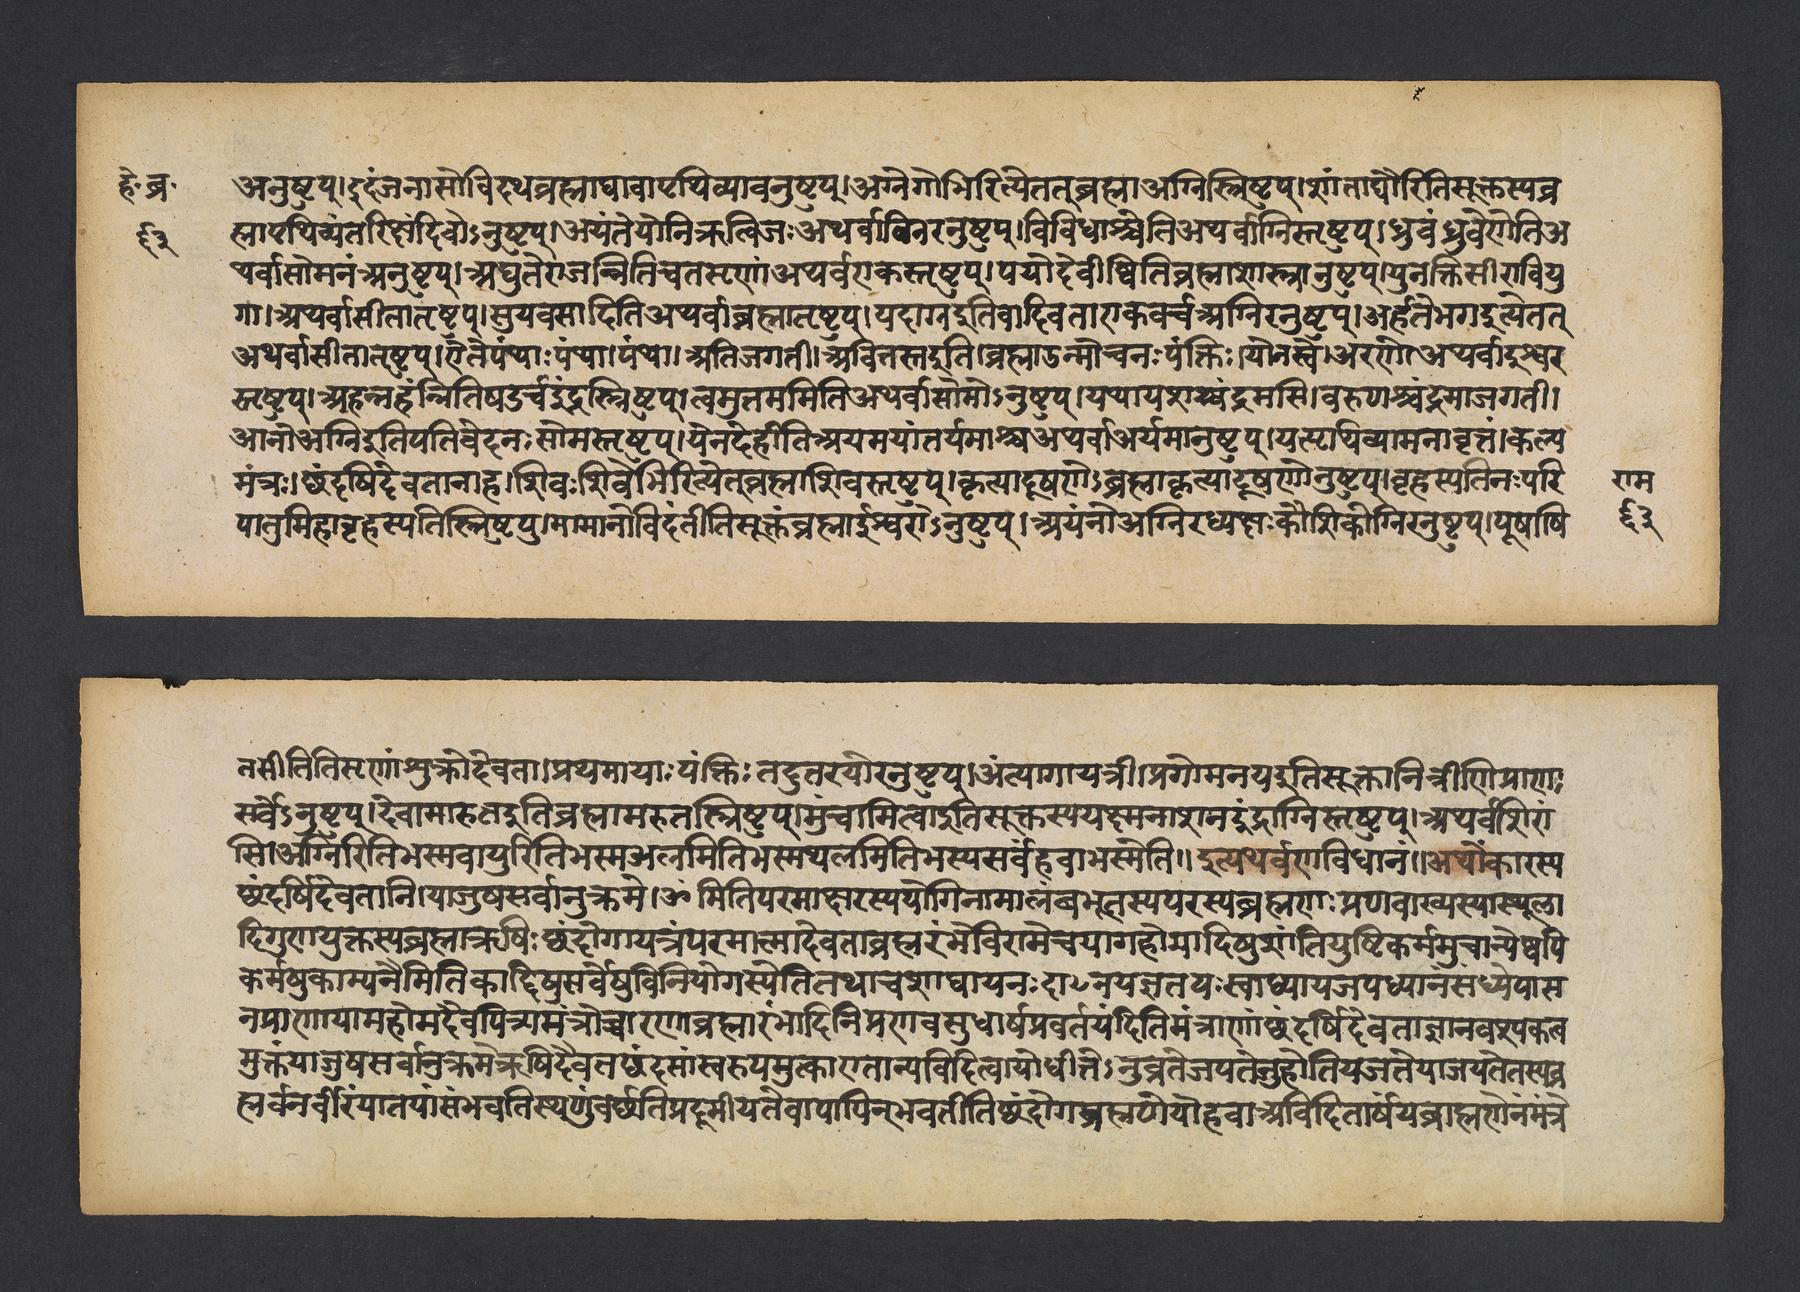 हे॰ब्र॰
६३
अनुष्टुप्।इदंजनासोविदथब्रह्माद्यावापृथिव्यावनुष्टुप्।अग्नेगोभिरित्येतत्ब्रह्माअग्निस्त्रिष्टुप्।शांताद्यौरितिसूक्तस्यब्र
ह्मापृथिव्यंतरिक्षंदिवोऽनुष्टुप्।अयंतेयोनिऋत्विजःअथर्वाग्निरनुष्टुप्।विविधाश्चेतिअथर्वाग्निस्तृष्टुप्।ध्रुवंध्रुवेणेतिअ
थर्वासोमनंअनुष्टुप्।अद्युतेराजन्नितिचतसृणांअथर्वणकस्तृष्टुप्।पयोदेवीष्वितिब्रह्माशास्त्रानुष्टुप्।युनक्तिसीरावियु
गा।अथर्वासीतातृष्टुप्।सुयवसादितिअथर्वाब्रह्मातृष्टुप्।यदाग्नइतिवादिवताएकवर्चअग्निरनुष्टुप्।अर्हतेभगइत्येतत्
अथर्वासीतातृष्टुप्।येतेपंथाःपंथा।पंथा।अतिजगती।अवित्तस्तइति।ब्रह्माउन्मोचनःपंक्तिः।योनस्वे।अरणोअथर्वाईश्वर
स्तृष्टुप्।अहन्नहंन्नितिषडर्चइंद्रस्त्रिष्टुप्।त्वमुत्तममितिअथर्वासोमोऽनुष्टुप्।यथायशश्चंद्रमसि।वरुणश्चंद्रमाजगती।
आनोअग्निइतिपतिवेदनःसोमस्तृष्टुप्।येनदेहीतिअयमयांतर्यमाश्चअथर्वाअर्यमानुष्टुप्।यत्पृथिव्यामनावृत्तं।कल्प
मंत्रः।छंदृषिदेवतानाह।शिवःशिवेभिरित्येत्ब्रह्माशिवस्तृष्टुप्।कृत्यादूषणोऽब्रह्माकृत्यादूषणोनुष्टुप्।बृहस्पतिनःपरि
पातुमिहाबृहस्पतिस्त्रिष्टुप्।मामानोविदंतीतिसूक्तंब्रह्माईश्वरोऽनुष्टुप्।अयंनोअग्निरध्यक्षःकौशिकोग्निरनुष्टुप्।पूषषि
राम
६३
तसीतितिसृणांशुक्रोदेवता।प्रथमायाःपंक्तिःतदुतरयोरनुष्टुप्।अंत्यागायत्री।प्रगोमनयइतिसूक्तानित्रीणिप्राणः
सर्वेऽनुष्टुप्।देवामारुतइतिब्रह्मामरुतस्त्रिष्टुप्।मुंचामित्वाइतिसूक्तस्ययक्ष्मनाशनइंद्राग्निस्तृष्टुप्।अथर्वशिरां
सि।अग्निरितिभस्मवायुरितिभस्मजलमितिभस्मथलमितिभस्यसर्वंहवाभस्मेति॥इत्यथर्वणविधानं॥अथोंकारस्य
छंदर्षिदेवतानि।याजुषसर्वानुक्रमे।ॐमितिपरमाक्षरस्ययोगिनामालंबभूतस्यपरस्यब्रह्मणःप्रणवाख्यस्यास्थूला
दिगुणयुक्तस्यब्रह्माऋषिःछंदोगायत्रंपरमात्मादेवताब्रह्मरंभेविरामेचयागहोमादिषुशांतिपुष्टिकर्ममुचान्येष्वपि
कर्मषुकाम्यनैमितिकादिषुसर्वेषुविनियोगस्येतितथाचशाघायनःदानयज्ञतपःस्वाध्यायजपध्यानसंध्योपास
नप्राणायामहोमदैवपित्र्यमंत्रोच्चारणब्रह्मारंभादिनिप्रणवमुधार्षप्रवर्तयंदितिमंत्राणांछंदर्षिदेवताज्ञानवश्यकत्व
मुक्तंयाजुषसर्वानुक्रमेऋषिदैवतछंदसांस्वरुपमुत्काएतान्यविदित्वायोधीतेऽनुब्रतेजपतेजुहोतियजतेयाजयतेतस्यब्र
ह्मर्वनर्वीरियातयांसंभवतिस्थणुंवर्छतिप्रदूमीयतेवापापिन्भवतीतिछंदोगब्रह्मणेयोहवाअविदितार्षयब्राह्मणेनमंत्रे